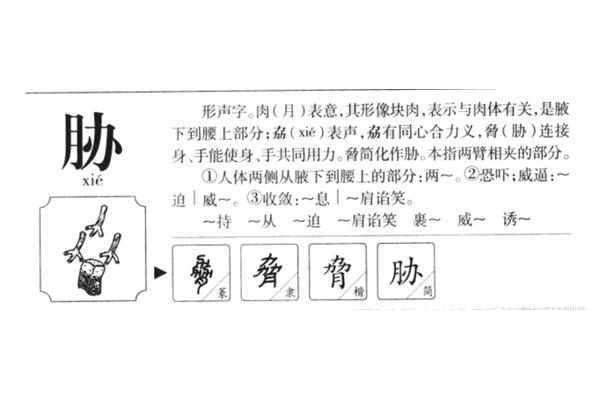 胁
xié
形声字。肉(月)表意,其形像块肉,表示与肉体有关,是腋
下到腰上部分;劦(xié)表声,劦有同心合力义,脅(胁)连接
身、手能使身、手共同用力。脅简化作胁。本指两臂相夹的部分。
①人体两侧从腋下到腰上的部分:两～。②恐吓;威逼:～
迫|威～。③收敛:～息|～肩谄笑。
～持 ～从 ～迫 ～肩谄笑 裹～ 威～ 诱～
篆 脅 隶 脅 楷 胁 简